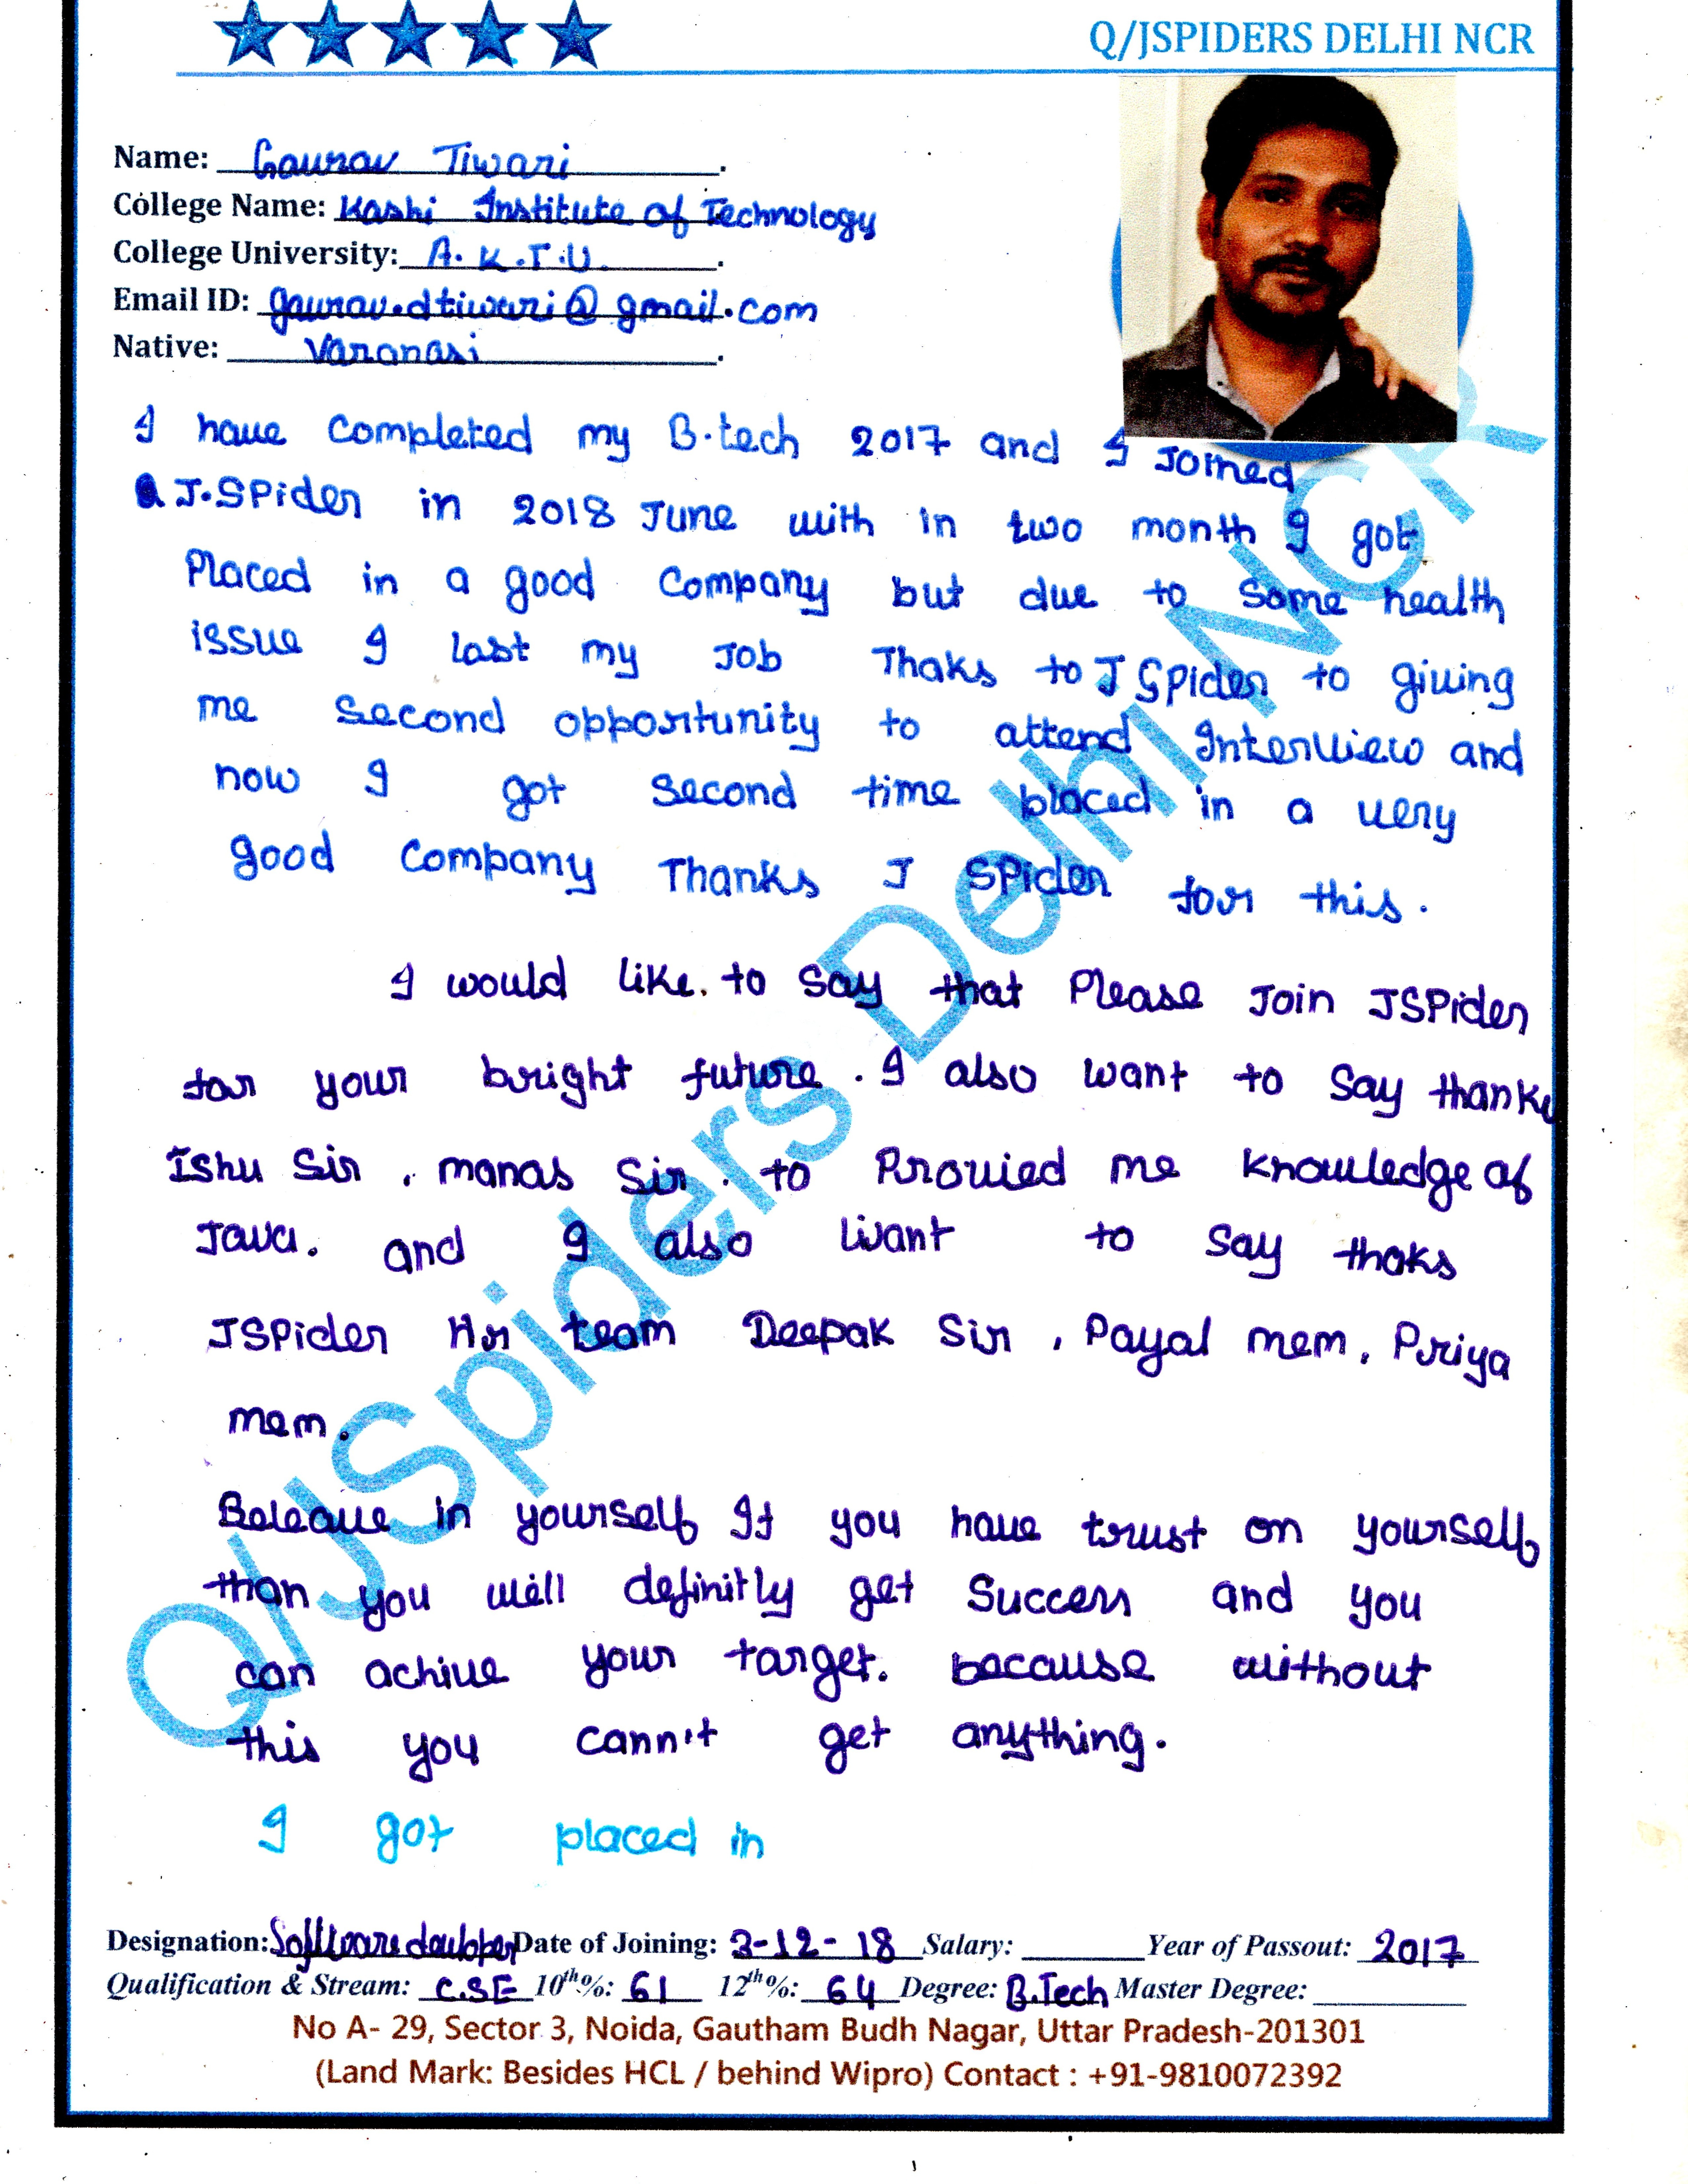 Q/JSPIDERS DELHI NCR
Name: Gaurav Tiwari.
College Name: Kashi Institute of Technology
College University: A.K.T.U.
Email ID: gaurav.dtiwari@gmail.com
Native: Varanasi.
I have completed my B.tech 2017 and I Joined
J.SPider in 2018 June with in two month I got
Placed in a good Company but due to some health
issue I last my Job Thaks to J SPider to giving
me second opportunity to attend Interview and
now I got second time placed in a very
good Company Thanks J SPider for this.
I would like to say that Please Join JSPider
for your bright future. I also want to say thanks
Ishu Sir, manas Sir. to Provied me knowledge of
Java. and I also want to say thaks
JSPider Hr team Deepak Sir, Payal mem, Priya
mem.
Beleave in yourself If you have trust on yourself
than you will definitly get Success and you
can achive your target. because without
this you cann't get anything.
I got placed in
Designation: Date of Joining: 3-12-18 Salary: Year of Passout: 2017
Qualification & Stream: C.SE 10th%: 61 12th%: 64 Degree: B.Tech Master Degree:
No A- 29, Sector 3, Noida, Gautham Budh Nagar, Uttar Pradesh-201301
(Land Mark: Besides HCL / behind Wipro) Contact : +91-9810072392
Q/JSpiders Delhi NCR